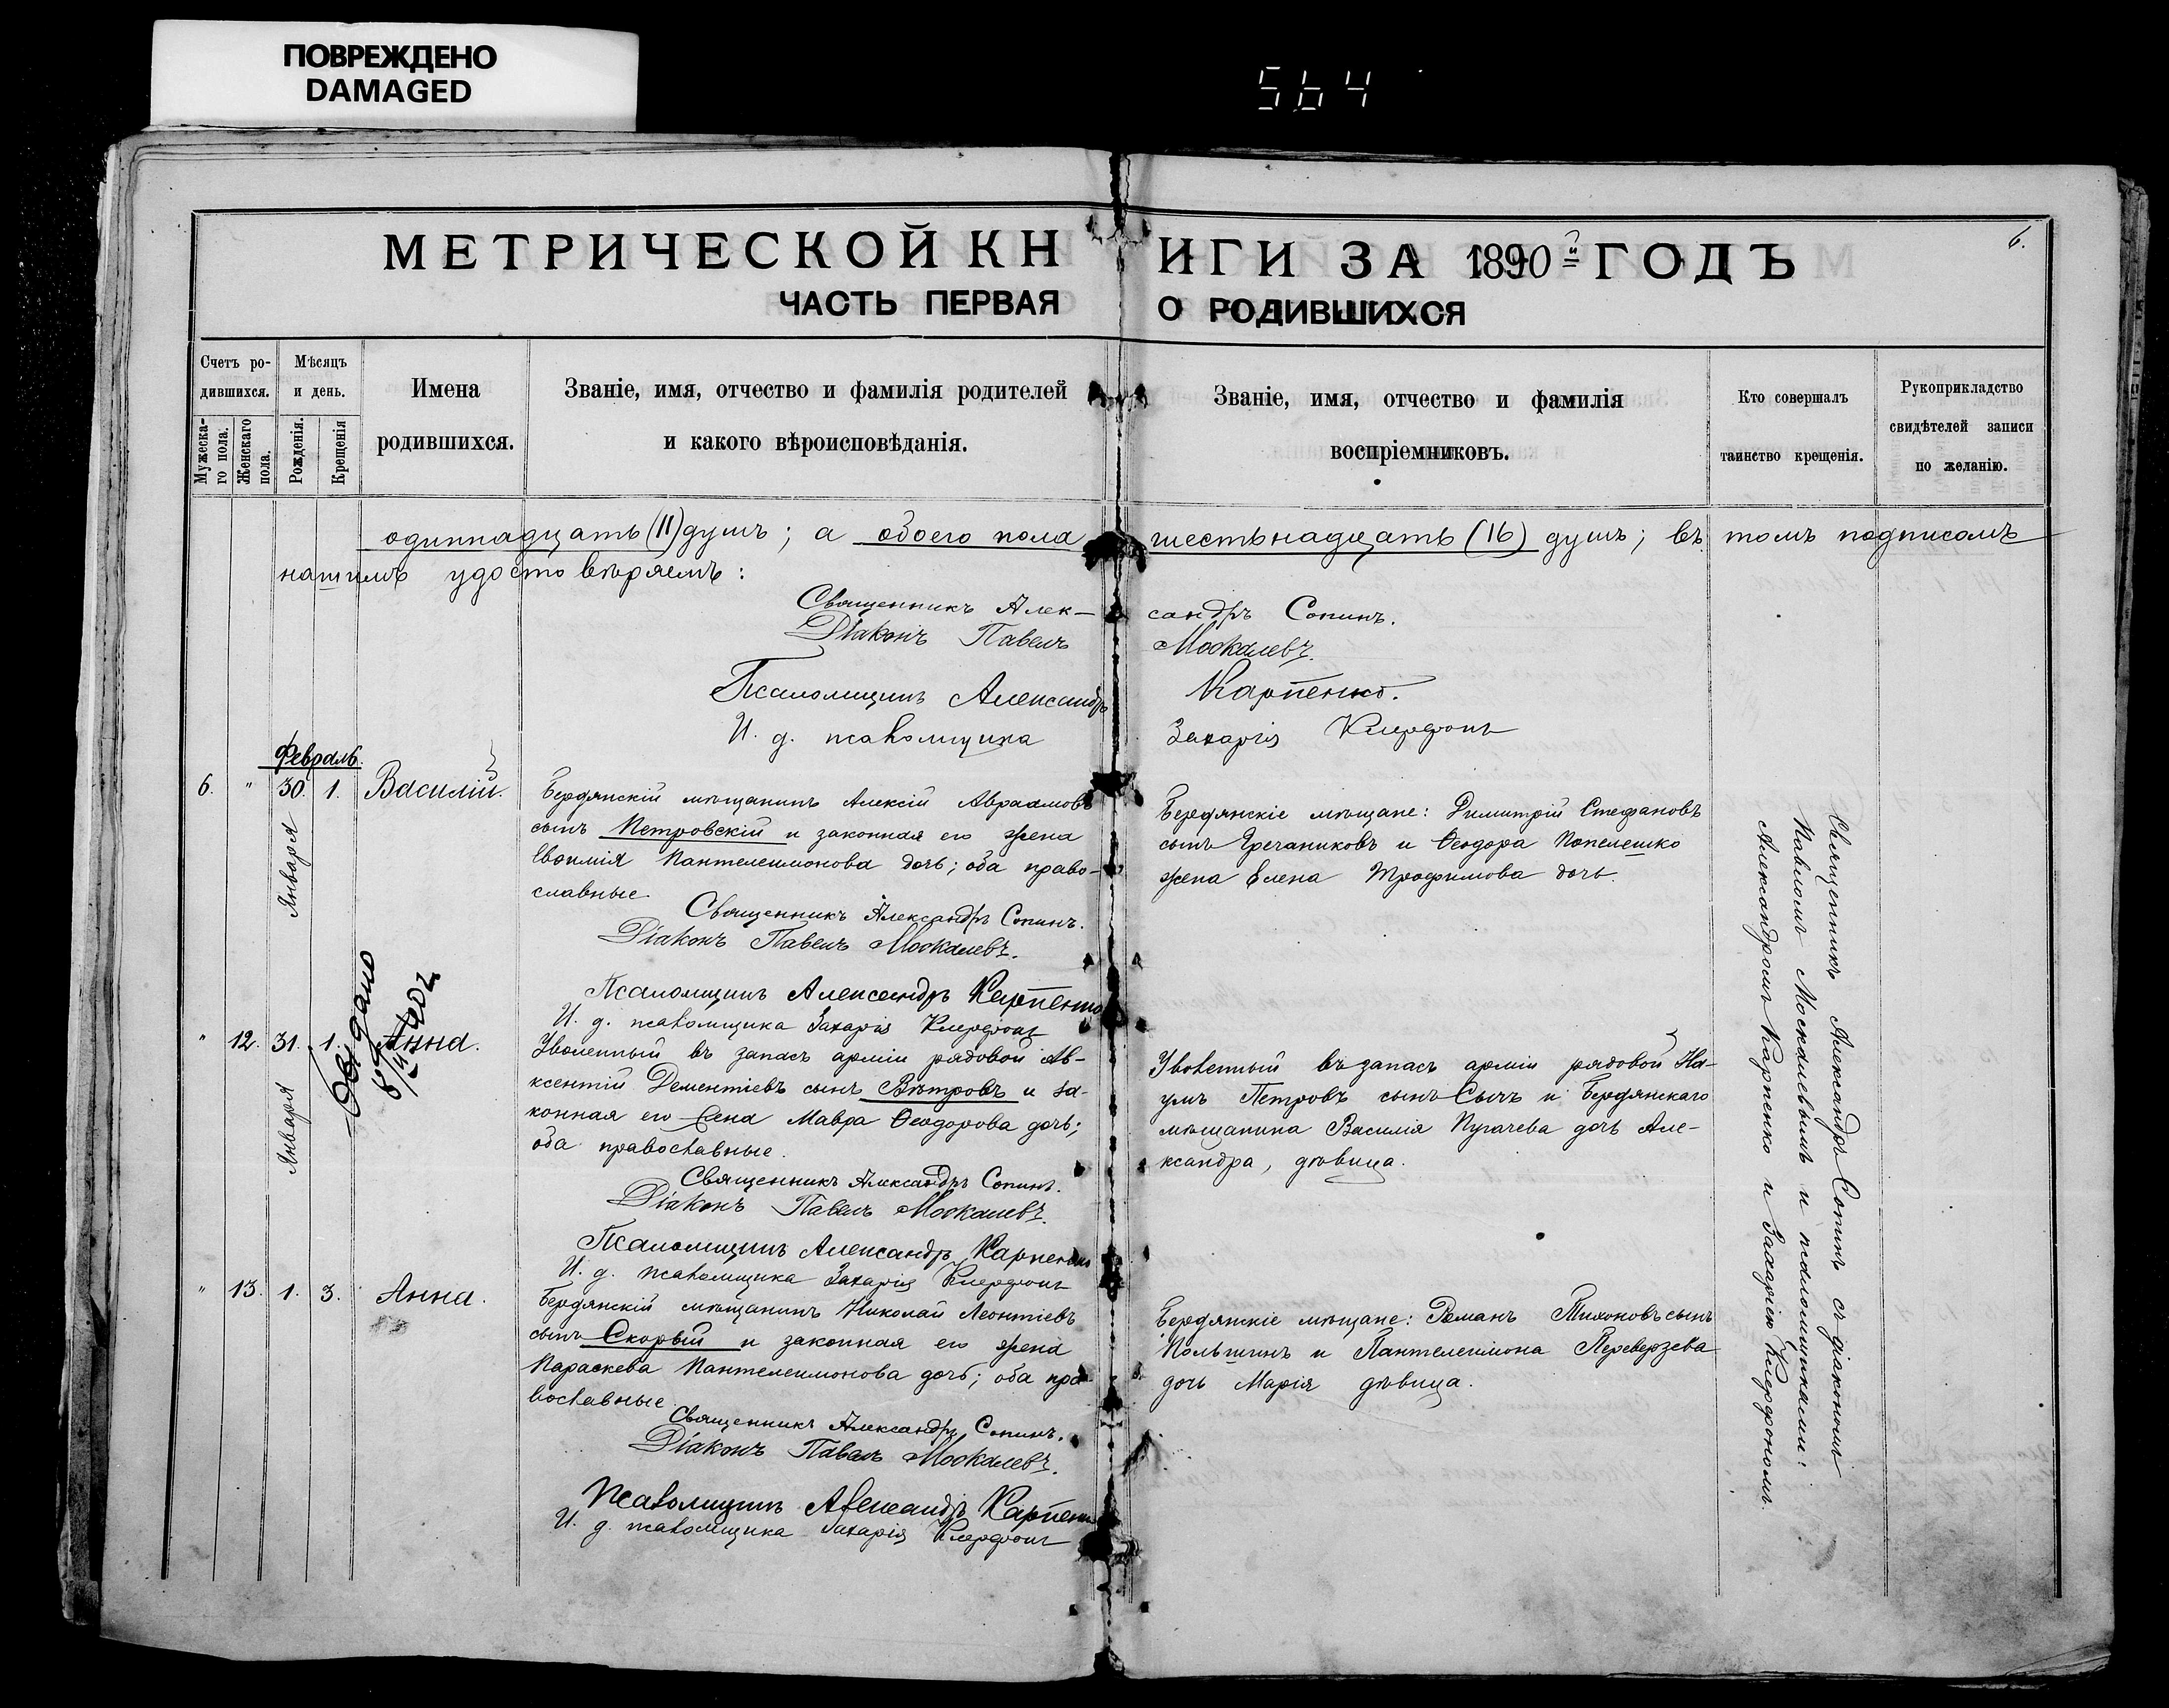 ПОВРЕЖДЕНО
DAMAGED
564
МЕТРИЧЕСКОЙ КНИГИ ЗА 1890й ГОДЪ
6.
ЧАСТЬ ПЕРВАЯ О РОДИВШИХСЯ
Счетъ ро-
дившихся.
Мужеска-
го пола.
Женскаго
пола.
Мѣсяцъ
и день.
Рожденія.
Крещенія
Имена
родившихся.
Званіе, имя, отчество и фамилія родителей
и какого вѣроисповѣданія.
Званіе, имя, отчество и фамилія
воспріемниковъ.
Кто совершалъ
таинство крещенія.
Рукоприкладство
свидѣтелей записи
по желанію.
одиннадцать (11) душъ; а обоего пола шестьнадцать (16) душъ; въ томъ подписомъ
нашимъ удостовѣряемъ:
Священникъ Александръ Сопинъ.
Діаконъ Павелъ Москалевъ.
Псаломщикъ Александръ Карпенко.
И. д. псаломщика Захарія
Февраль.
6. " 30. 1. Василій.
Января
Бердянскій мѣщанинъ Алексій Авраамовъ
сынъ Петровскій и законная его жена
Пантелеимонова дочь; оба право-
славные
Священникъ Александръ Сопинъ.
Діаконъ Павелъ Москалевъ.
Псаломщикъ Александръ Карпенко
И. д. псаломщика Захарія
Бердянскіе мѣщане: Димитрій Стефановъ
сынъ Гречаниковъ и Ѳеодора Попелешко
жена Елена Трофимова дочь.
" 12. 31. 1. Анна.
Января
Выдано
Уволенный въ запасъ арміи рядовой Ав-
ксентій Дементіевъ сынъ Вѣтровъ и за-
конная его жена Мавра Ѳеодорова дочь;
оба православные.
Священникъ Александръ Сопинъ.
Діаконъ Павелъ Москалевъ.
Псаломщикъ Александръ Карпенко
И. д. псаломщика Захарія
Уволенный въ запасъ арміи рядовой На-
умъ Петровъ сынъ Сычъ и Бердянскаго
мѣщанина Василія Пугачева дочь Але-
ксандра, дѣвица.
" 13. 1. 3. Анна.
Бердянскій мѣщанинъ Николай Леонтіевъ
сынъ Скорый и законная его жена
Параскева Пантелеимонова дочь; оба пра-
вославные
Священникъ Александръ Сопинъ.
Діаконъ Павелъ Москалевъ.
Псаломщикъ Александръ Карпенко
И. д. псаломщика Захарія
Бердянскіе мѣщане: Романъ Тихоновъ сынъ
Польшинъ и Пантелеимона Переверзева
дочь Марія дѣвица.
Священникъ Александръ Сопинъ съ діакономъ
Павломъ Москалевымъ и псаломщиками:
Александромъ Карпенко и Захаріею